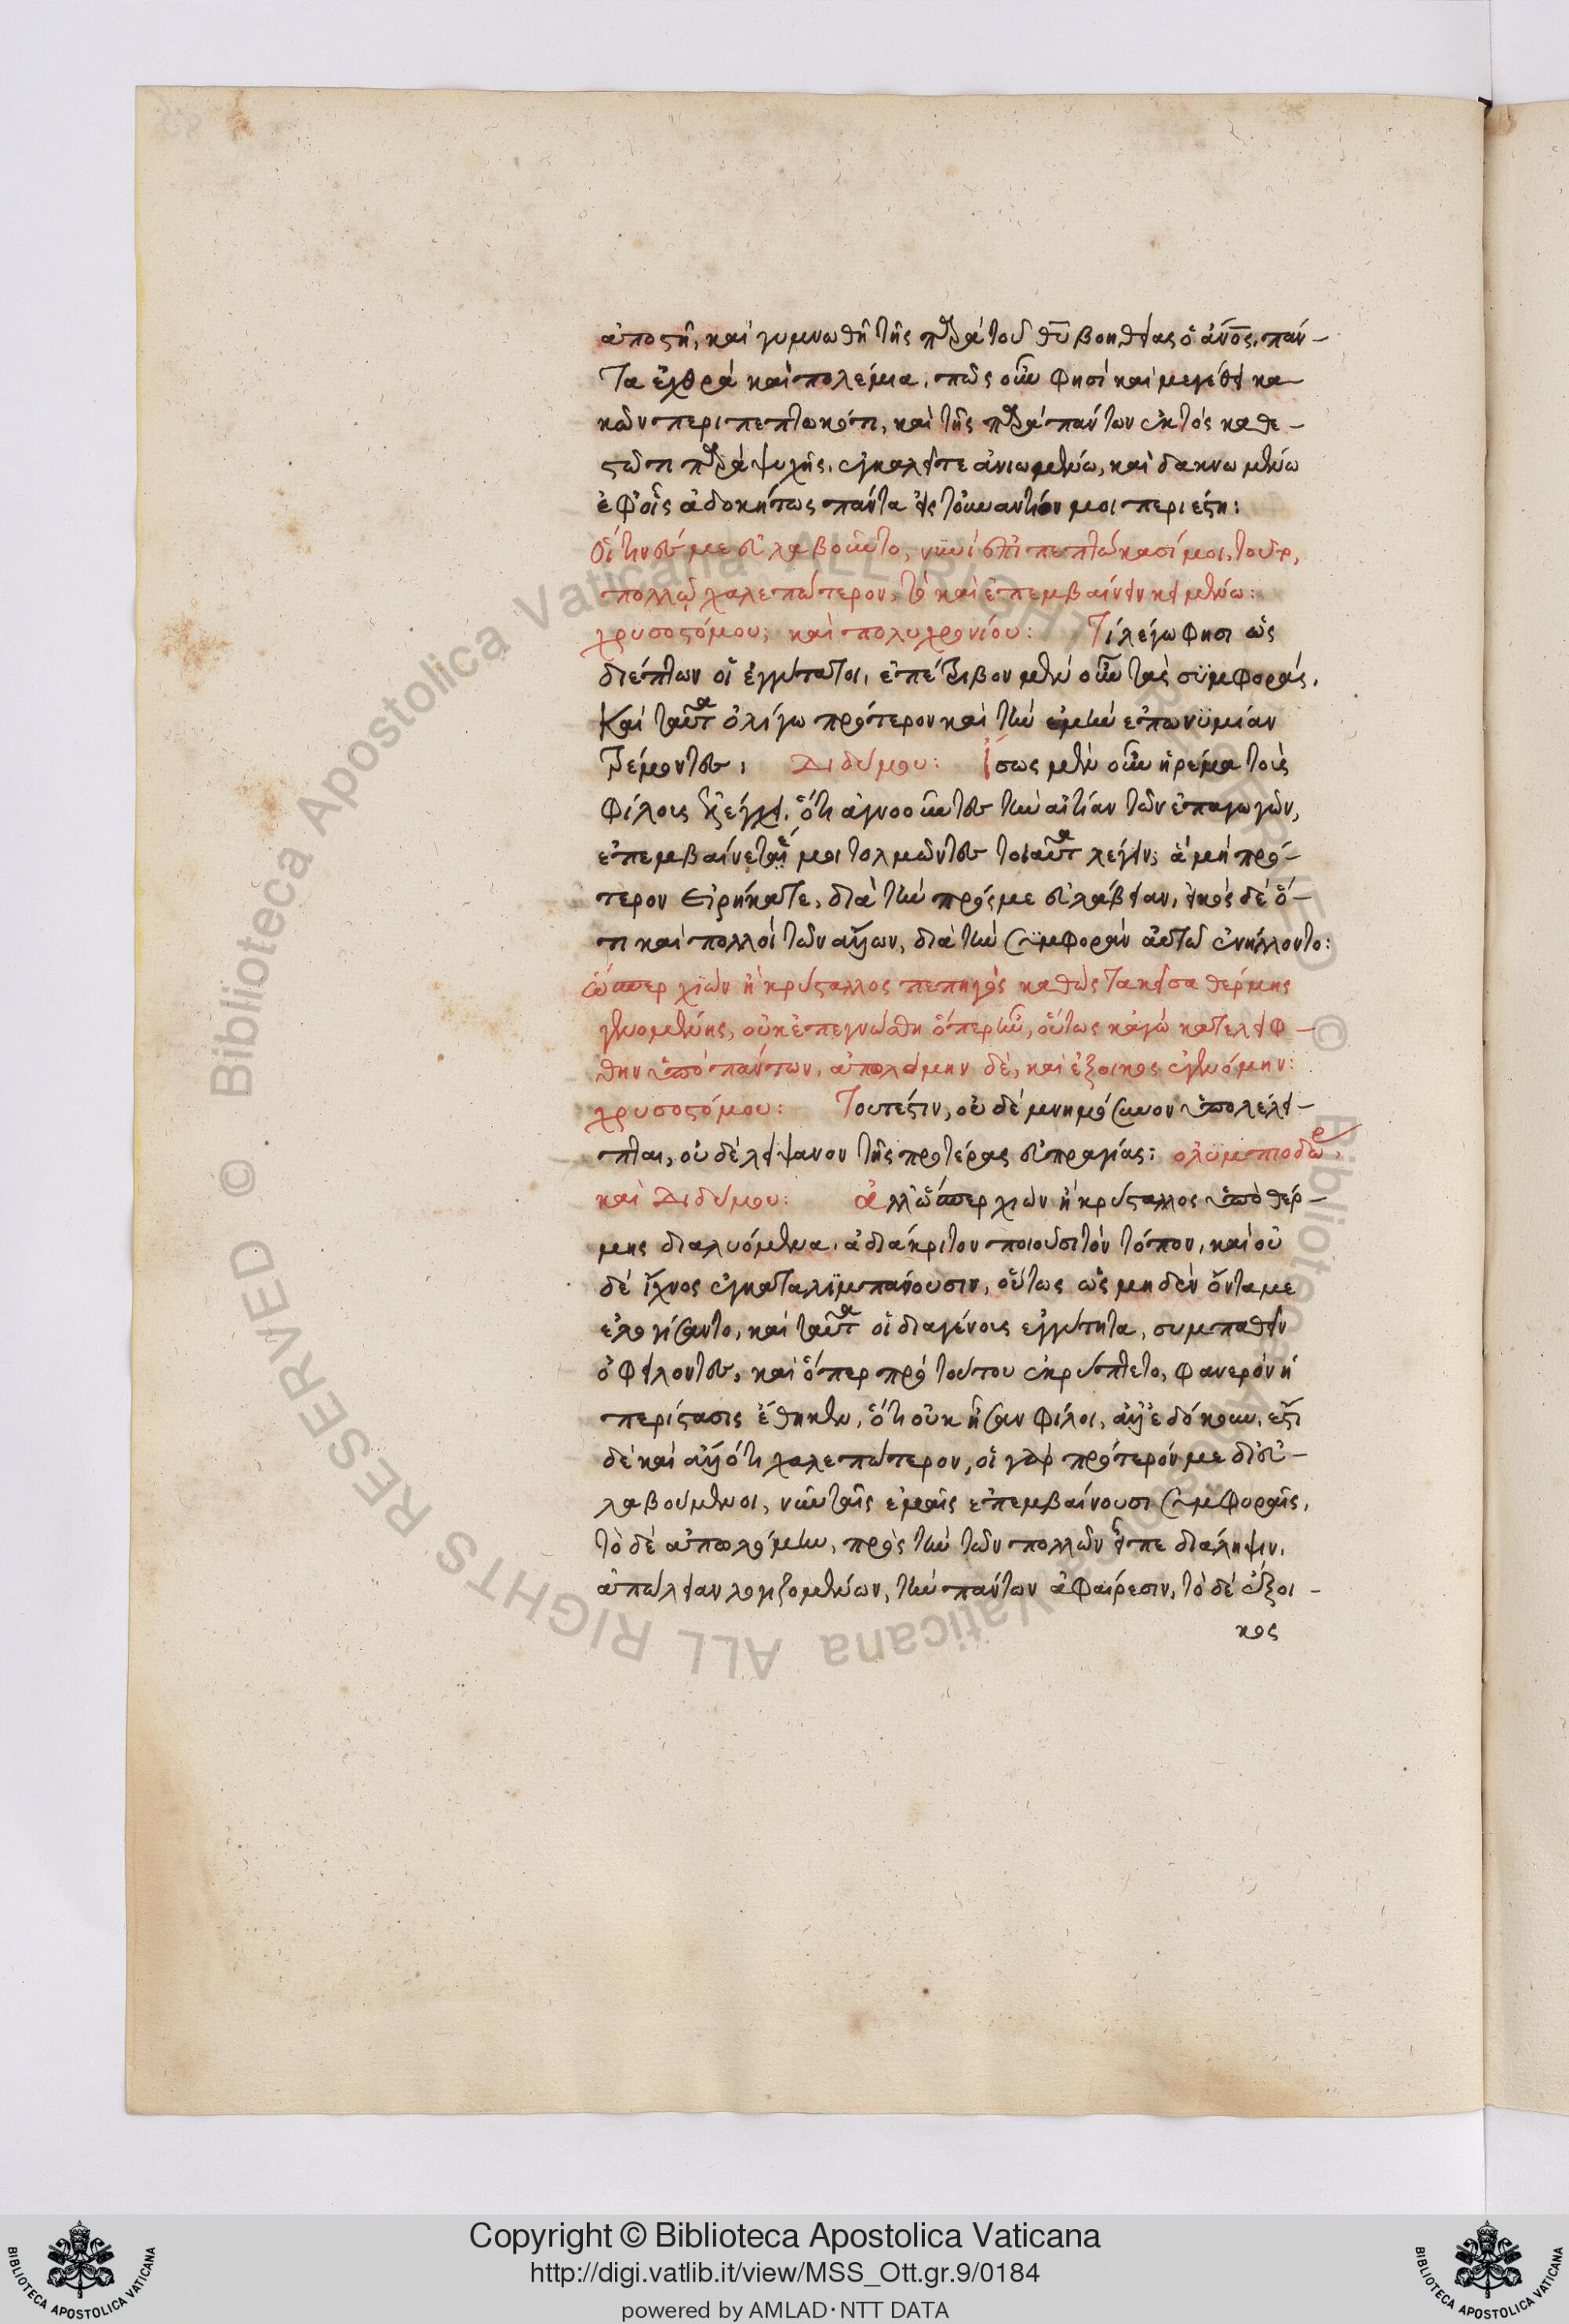 ἀποστῆ, καὶ γυμνωθῆ τῆς παρὰ τοῦ θῦ βοηθείας ὁ ἄνος, πάν-
τα ἐχθρὰ καὶ πολέμια. πῶς οὖν φησὶ καὶ μεγέθει κα-
κῶν περιπεπτωκότι, καὶ τῆς παρὰ πάντων ἐκτὸς καθε-
στῶτι παραψυχῆς. ἐγκαλεῖτε ἀνιωμένω, καὶ δακνωμένω
ἐφ' οἷς ἀδοκήτως πάντα εἰς τοὐναντίον μοι περιέστη:
Οἵτινές με διευλαβοῦντο, νυνὶ ἐπιπεπτώκασί μοι. τουρ,
πολλῶ χαλεπώτερον, τὸ καὶ ἐπεμβαίνειν κειμένω:
χρυσοστόμου; καὶ πολυχρονίου: Τί λέγω φησι ὡς
διέπτων οἱ ἐγγύτατοι, ἐπέτριβον μὲν οὖν τὰς συμφοράς.
Καὶ ταῦτα ὀλίγω πρότερον καὶ τὴν ἐμὴν ἐπωνυμίαν
τρέμοντες: Διδύμου: Ἴσως μὲν οὖν ἠρέμα τοὺς
φίλους ἐξελέγχει. ὅτι ἀγνοοῦντες τὴν αἰτίαν τῶν ἐπαγωγῶν,
ἐπεμβαίνεταί μοι τολμῶντες τοιαῦτα λέγειν; ἃ μὴ πρό-
τερον εἰρήκατε, διὰ τὴν πρός με εὐλάβειαν. εἰκὸς δὲ ὅ-
τι καὶ πολλοὶ τῶν ἄλλων, διὰ τὴν συμφορὰν αὐτῶ ἐνήλλοντο:
ὥσπερ χιὼν ἢ κρύσταλλος πεπηγὸς καθὼς τακεῖσα θέρμης
γενομένης, οὐκ ἐπεγνώσθη ὅπερ ἦν, οὕτως κἀγὼ κατελείφ-
θην ὑπὸ πάντων, ἀπωλόμην δὲ, καὶ ἔξοικος ἐγενόμην:
χρυσοστόμου: Τουτέστιν, οὐδὲ μνημόσυνον ὑπολέλει-
πται, οὐδὲ λείψανον τῆς προτέρας εὐπραγίας: ὀλυμπιοδώρ,
καὶ Διδύμου: ἀλλ' ὥσπερ χιὼν ἢ κρύσταλλος ὑπὸ θέρ-
μης διαλυόμενα, ἀδιάκριτον ποιοῦσι τὸν τόπον, καὶ οὐ
δὲ ἴχνος ἐγκαταλιμπάνουσιν, οὕτως ὡς μηδὲν ὄντα με
ἐλογίσαντο, καὶ ταῦτα οἱ διαγένους ἐγγύτητα, συμπαθεῖν
ὀφείλοντες, καὶ ὅπερ πρὸ τούτου ἐκρύπτετο, φανερὸν ἡ
περίστασις ἔθηκεν, ὅτι οὐκ ἦσαν φίλοι, ἀλλ' ἐδόκουν, ἔστι
δὲ καὶ ἄλλο τι χαλεπώτερον, οἱ γὰρ πρότερόν με διευ-
λαβούμενοι, νῦν ταῖς ἐμαῖς ἐπεμβαίνουσι συμφοραῖς,
τὸ δὲ ἀπωλόμην, πρὸς τὴν τῶν πολλῶν εἶπε διάληψιν,
ἀπώλειαν λογιζομένων, τὴν πάντων ἀφαίρεσιν, τὸ δὲ ἔξοι-
κος
Copyright © Biblioteca Apostolica Vaticana
http://digi.vatlib.it/view/MSS_Ott.gr.9/0184
powered by AMLAD·NTT DATA